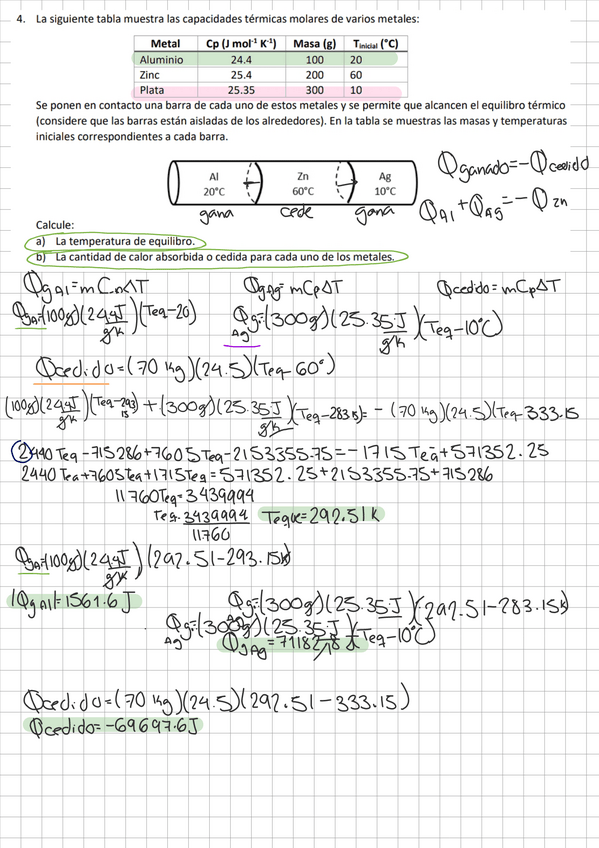 4. La siguiente tabla muestra las capacidades térmicas molares de varios metales:
Metal Cp (J mol-1 K-1) Masa (g) Tinicial (°C)
Aluminio 24.4 100 20
Zinc 25.4 200 60
Plata 25.35 300 10
Se ponen en contacto una barra de cada uno de estos metales y se permite que alcancen el equilibrio térmico
(considere que las barras están aisladas de los alrededores). En la tabla se muestras las masas y temperaturas
iniciales correspondientes a cada barra.
Al Zn Ag
20°C 60°C 10°C
gana cede gana
Qganado=-Qcedido
QAl+QAg=-Qzn
Calcule:
a) La temperatura de equilibro.
b) La cantidad de calor absorbida o cedida para cada uno de los metales.
QgAl=mCnΔT QgAg=mCpΔT Qcedido=mCpΔT
QgAl=(100g)(24.4J/g°K)(Teq-20) QgAg=(300g)(25.35J/g°K)(Teq-10°C)
Qcedido=(70 kg)(24.5)(Teq-60°)
(100g)(24.4J/g°K)(Teq-293.15)+(300g)(25.35J/g°K)(Teq-283.15)=-(70 kg)(24.5)(Teq-333.15
2440 Teq-715286+7605Teq-2153355.75=-1715Teq+571352.25
2440 Teq+7605Teq+1715Teq=571352.25+2153355.75+715286
11760Teq=3439994
Teq=3439994/11760 Teq=292.51K
QgAl=(100g)(24.4J/g°K)(292.51-293.15K)
|QgAl|=1561.6J
Qg=(300g)(25.35J)(292.51-283.15K)
QgAg=(300g)(25.35J)(Teq-10°C)
QgAg=71182.8J
Qcedido=(70 kg)(24.5)(292.51-333.15)
Qcedido=-69697.6J